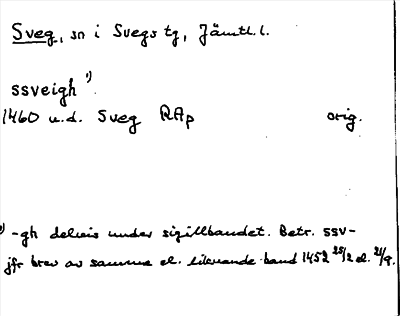 Sveg, sn i Svegs tg, Jämtl. l.
ssveigh 1)
1460 u.d. Sveg RAp orig.
1) -gh delvis under sigillbandet. Betr. ssv-
jfr brev av samma el. liknande hand 1452 25/2 el. 21/9.